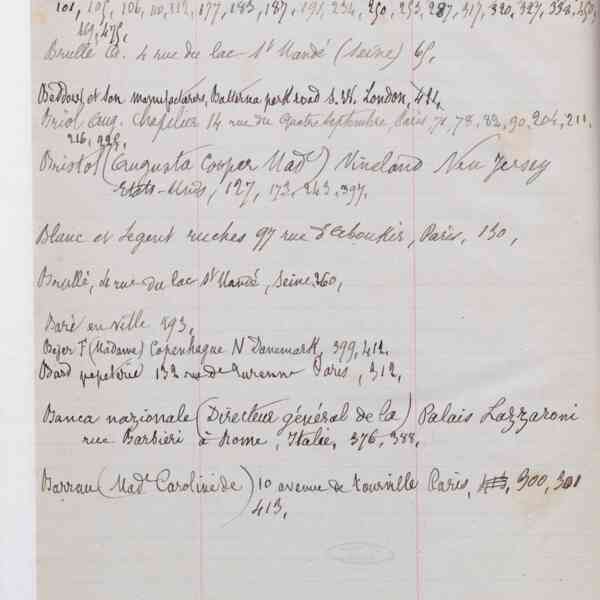 101, 105, 106, 110, 112, 177, 183, 187, 191, 234, 250, 253, 287, 317, 320, 327, 332, 450,
475,
Brullé A. 4 rue du lac St Mandé (Seine) 65,
Beddows et son manufacturers, Battersea park road S.W. London, 424,
Briol Aug. Chapelier 14 rue du Quatre septembre, Paris 71, 78, 82, 90, 204, 211,
216, 225,
Bristol (Augusta Cooper Made) Vineland New Jersey
Etats-Unis, 127, 173, 243, 397,
Blanc et Legent ruches 97 rue d'Aboukir, Paris, 130,
Brullé, 4 rue du lac St Mandé, Seine 260,
Baré en ville 293,
Bajer F (Madame) Copenhague N Danemark, 399, 412,
Bard papeterie 132 rue de Turenne Paris, 312,
Banca nazionale (Directeur général de la) Palais Lazzaroni
rue Barbieri à Rome, Italie, 376, 388,
Barrau (Made Caroline de) 10 avenue de Tourville Paris, 300, 301
413,